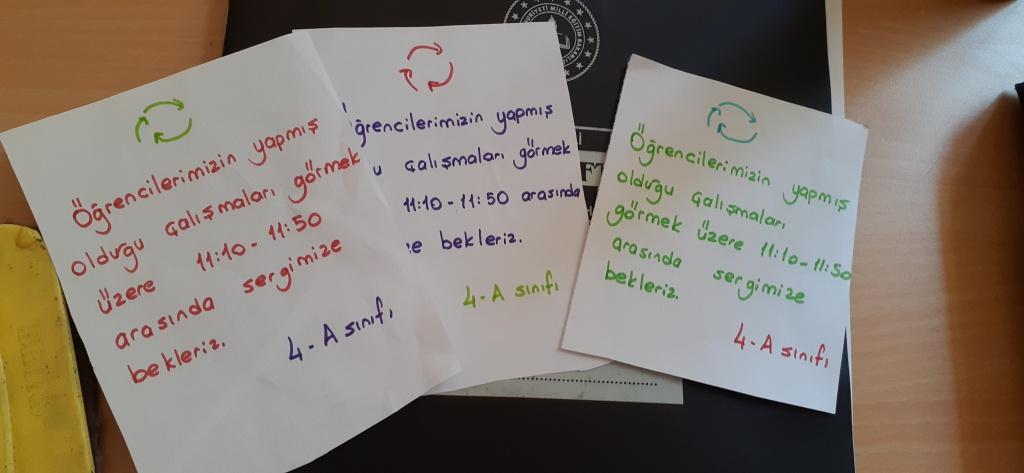 Öğrencilerimizin yapmış
olduğu çalışmaları görmek
üzere 11:10 - 11:50
arasında sergimize
bekleriz.
4-A sınıfı
ğrencilerimizin yapmış
u çalışmaları görmek
11:10 - 11:50 arasında
e bekleriz.
4-A sınıfı
Öğrencilerimizin yapmış
olduğu çalışmaları
görmek üzere 11:10-11:50
arasında sergimize
bekleriz.
4-A sınıfı